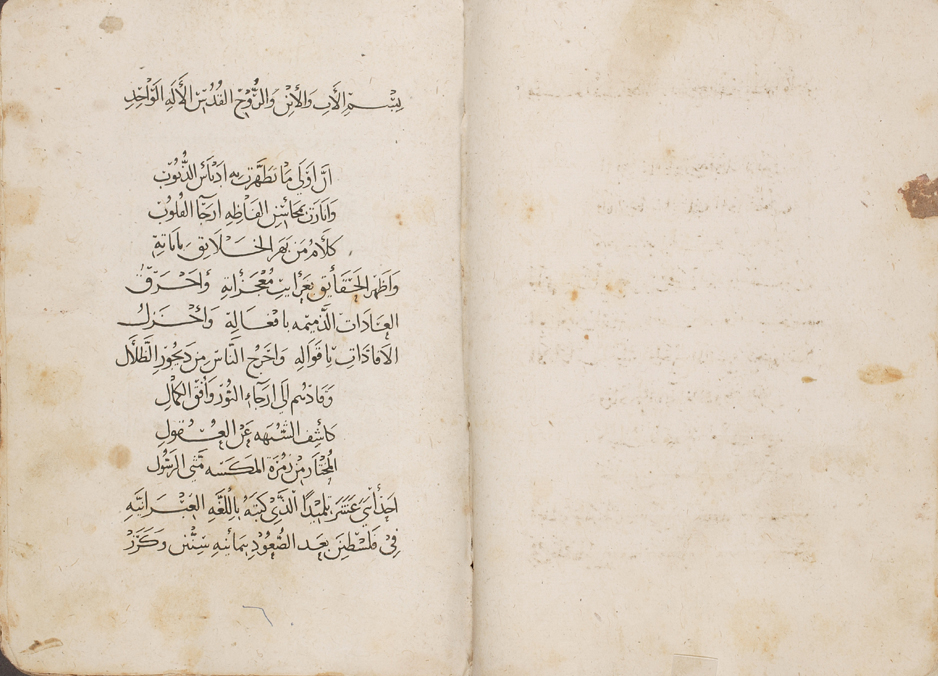 بسم الاب والابن والروح القدس الاله الواحد
ان اولى ما تطهرت به ادناس الذنوب
وانارت بمحاسن الفاظه ارجا القلوب
كلام من بهر الخلايق باياته
واظهر الحقايق بغرايب معجزاته واخرق
العادات الذميمه بافعاله واجزل
الافادات باقواله واخرج الناس من ديجور الظلال
وقادهم الى ارجاء النور وافق الكمال
كاشف الشبهه عن العقول
المختار من زمرة المكسه متى الرسول
احد اثنى عشر تلميدًا الذي كتبه باللغه العبرانيه
في فلسطين بعد الصعود بثمانيه سنين وكرز